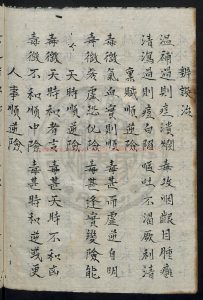 辨誤治
溫補過則痘潰爛 毒攻咽齦目腫癰
清瀉過則痘白陷 嘔吐不渴厥利清
稟賦順逆險
毒微氣血實則順 毒甚而虛逆自明
毒微氣虛恐化險 毒甚逢實變險能
天時順逆險
毒微天時和者吉 毒甚天時不和凶
毒微不和順中險 毒甚時和逆或更
人事順逆險